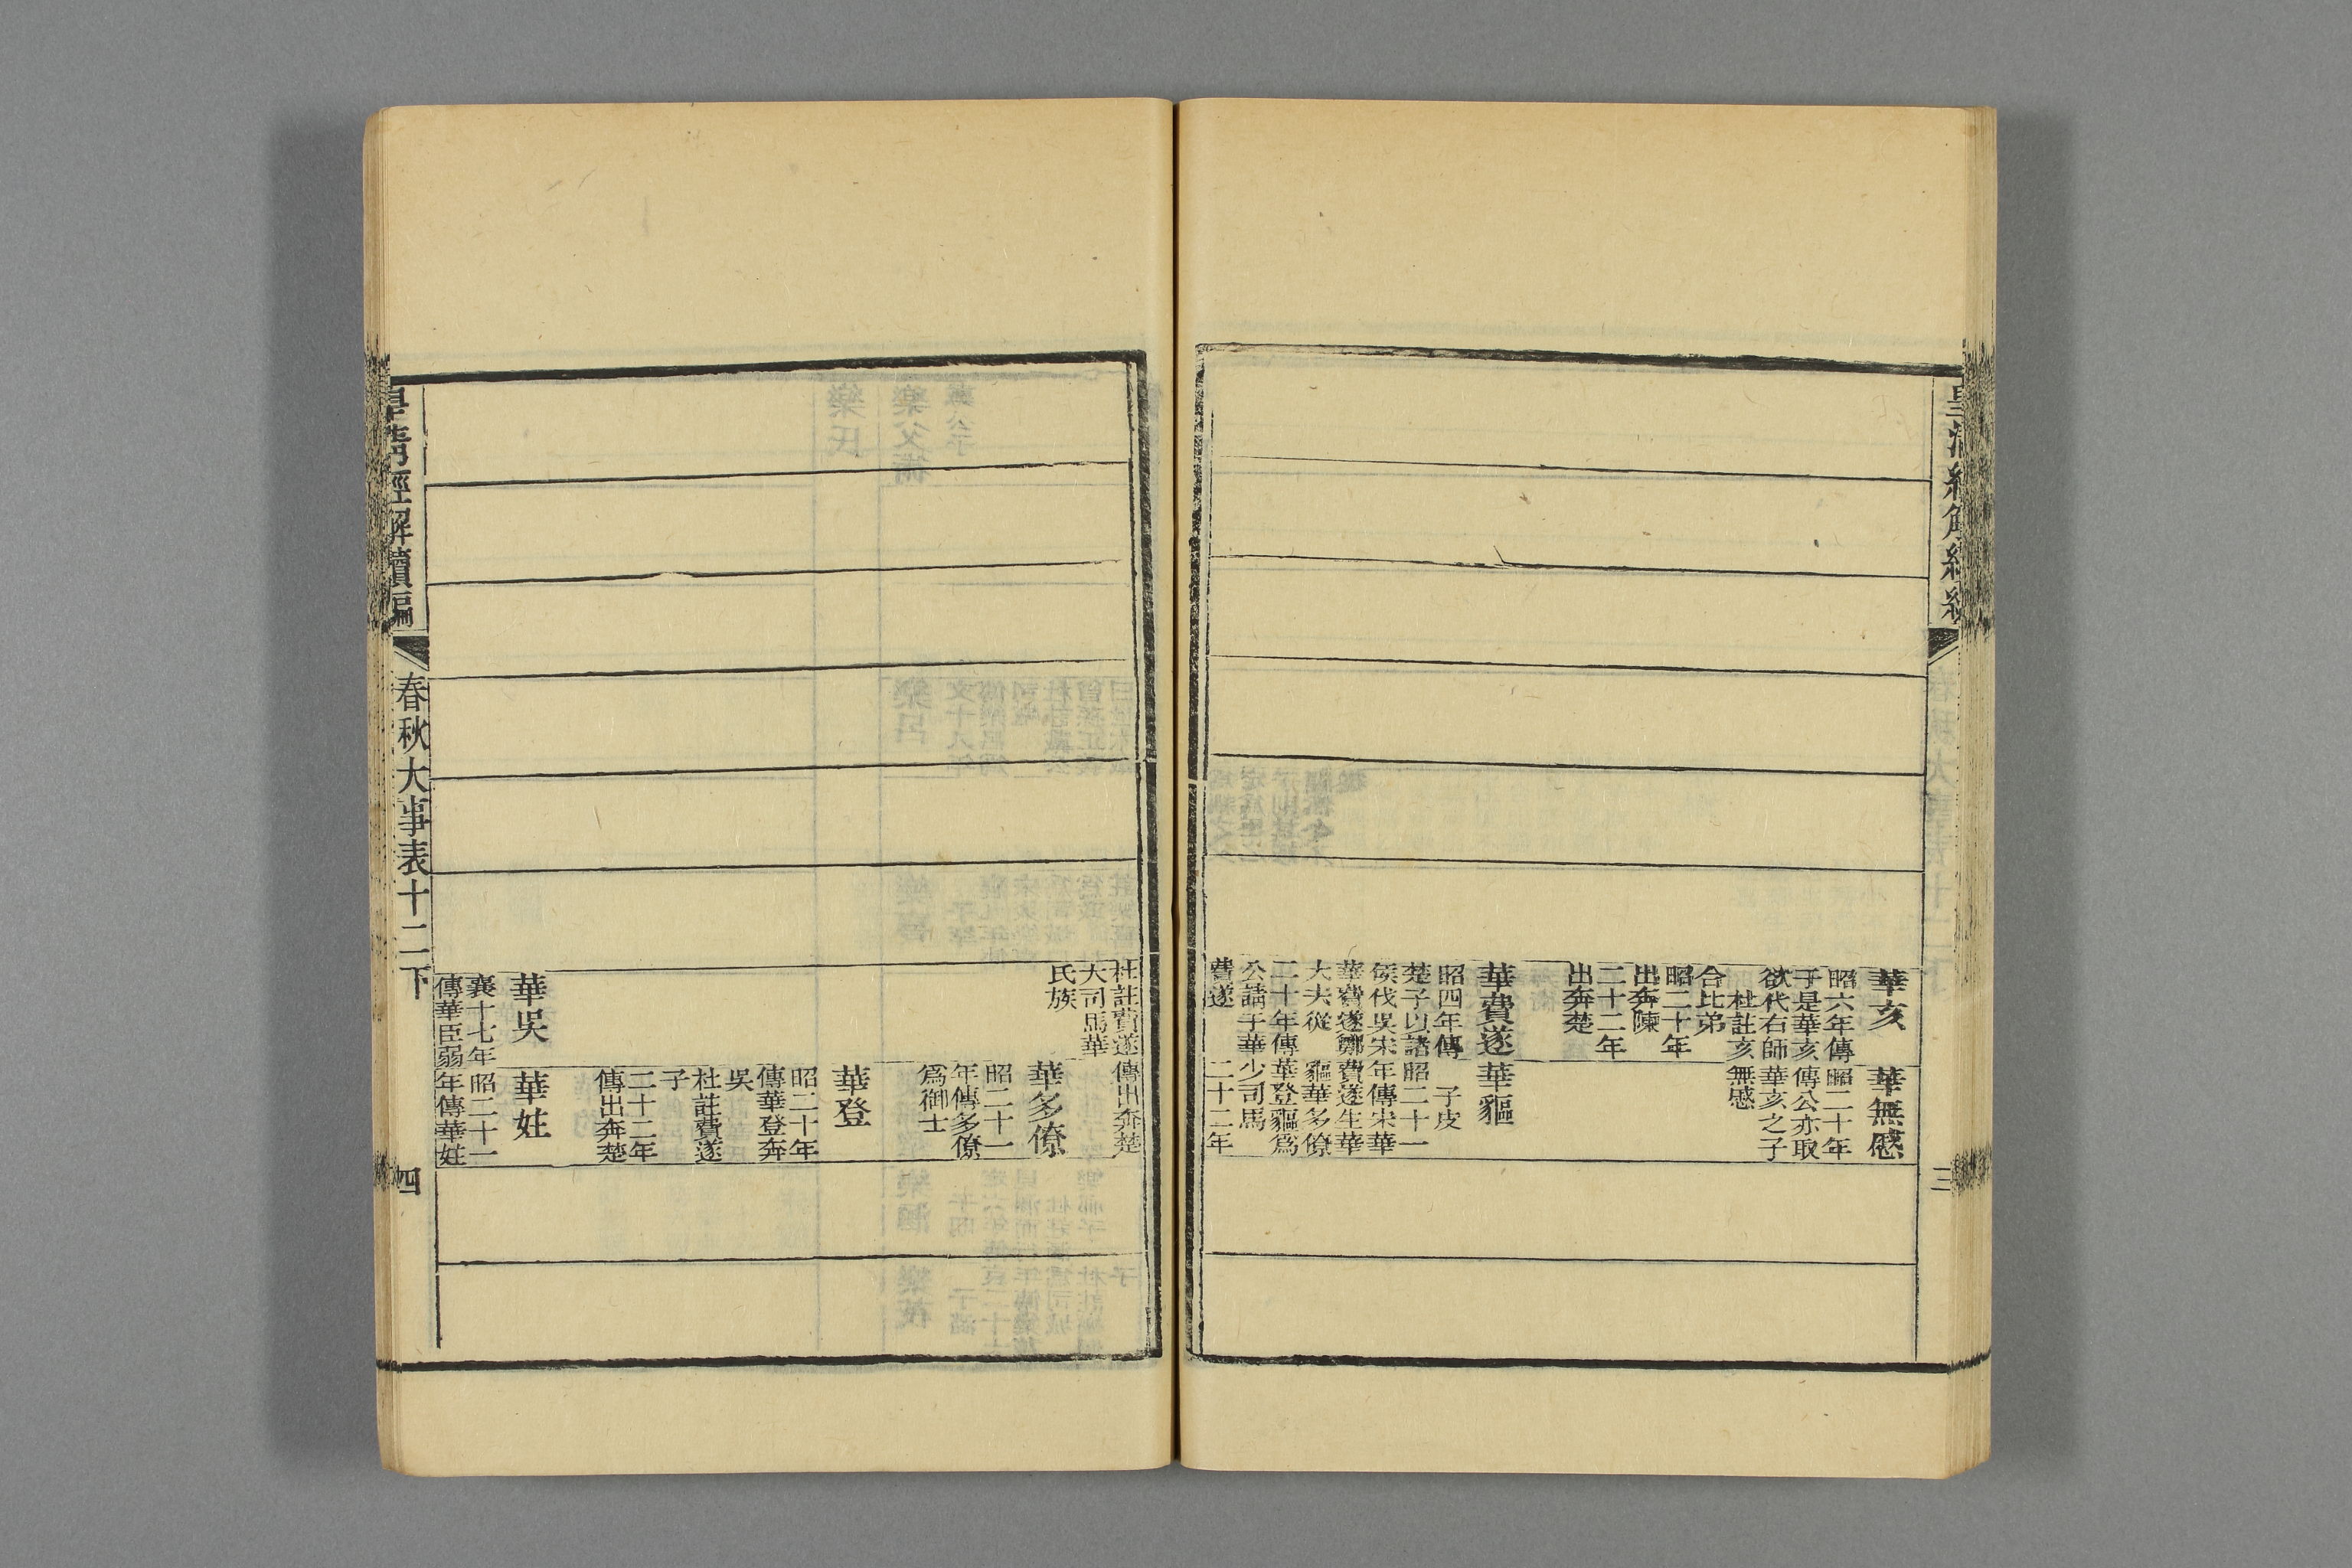 華亥
昭六年傳
于是華亥
欲代右師
杜註亥
合比弟
昭二十年
出奔陳
二十二年
出奔楚
華費遂
昭四年傳
楚子以諸
侯伐吳宋
華費遂鄭
大夫從
二十年傳
公請于華
費遂
華無慼
昭二十年
傳公亦取
華亥之子
無慼
華貙
子皮
昭二十一
年傳宋華
費遂生華
貙華多僚
華登貙爲
少司馬
二十二年
三
杜註費遂
大司馬華
氏族
華吳
襄十七年
傳華臣弱
傳出奔楚
華多僚
昭二十一
年傳多僚
爲御士
華登
昭二十年
傳華登奔
吳
杜註費遂
子
二十二年
傳出奔楚
華妵
昭二十一
年傳華妵
皇清經解續編
春秋大事表十二下
四